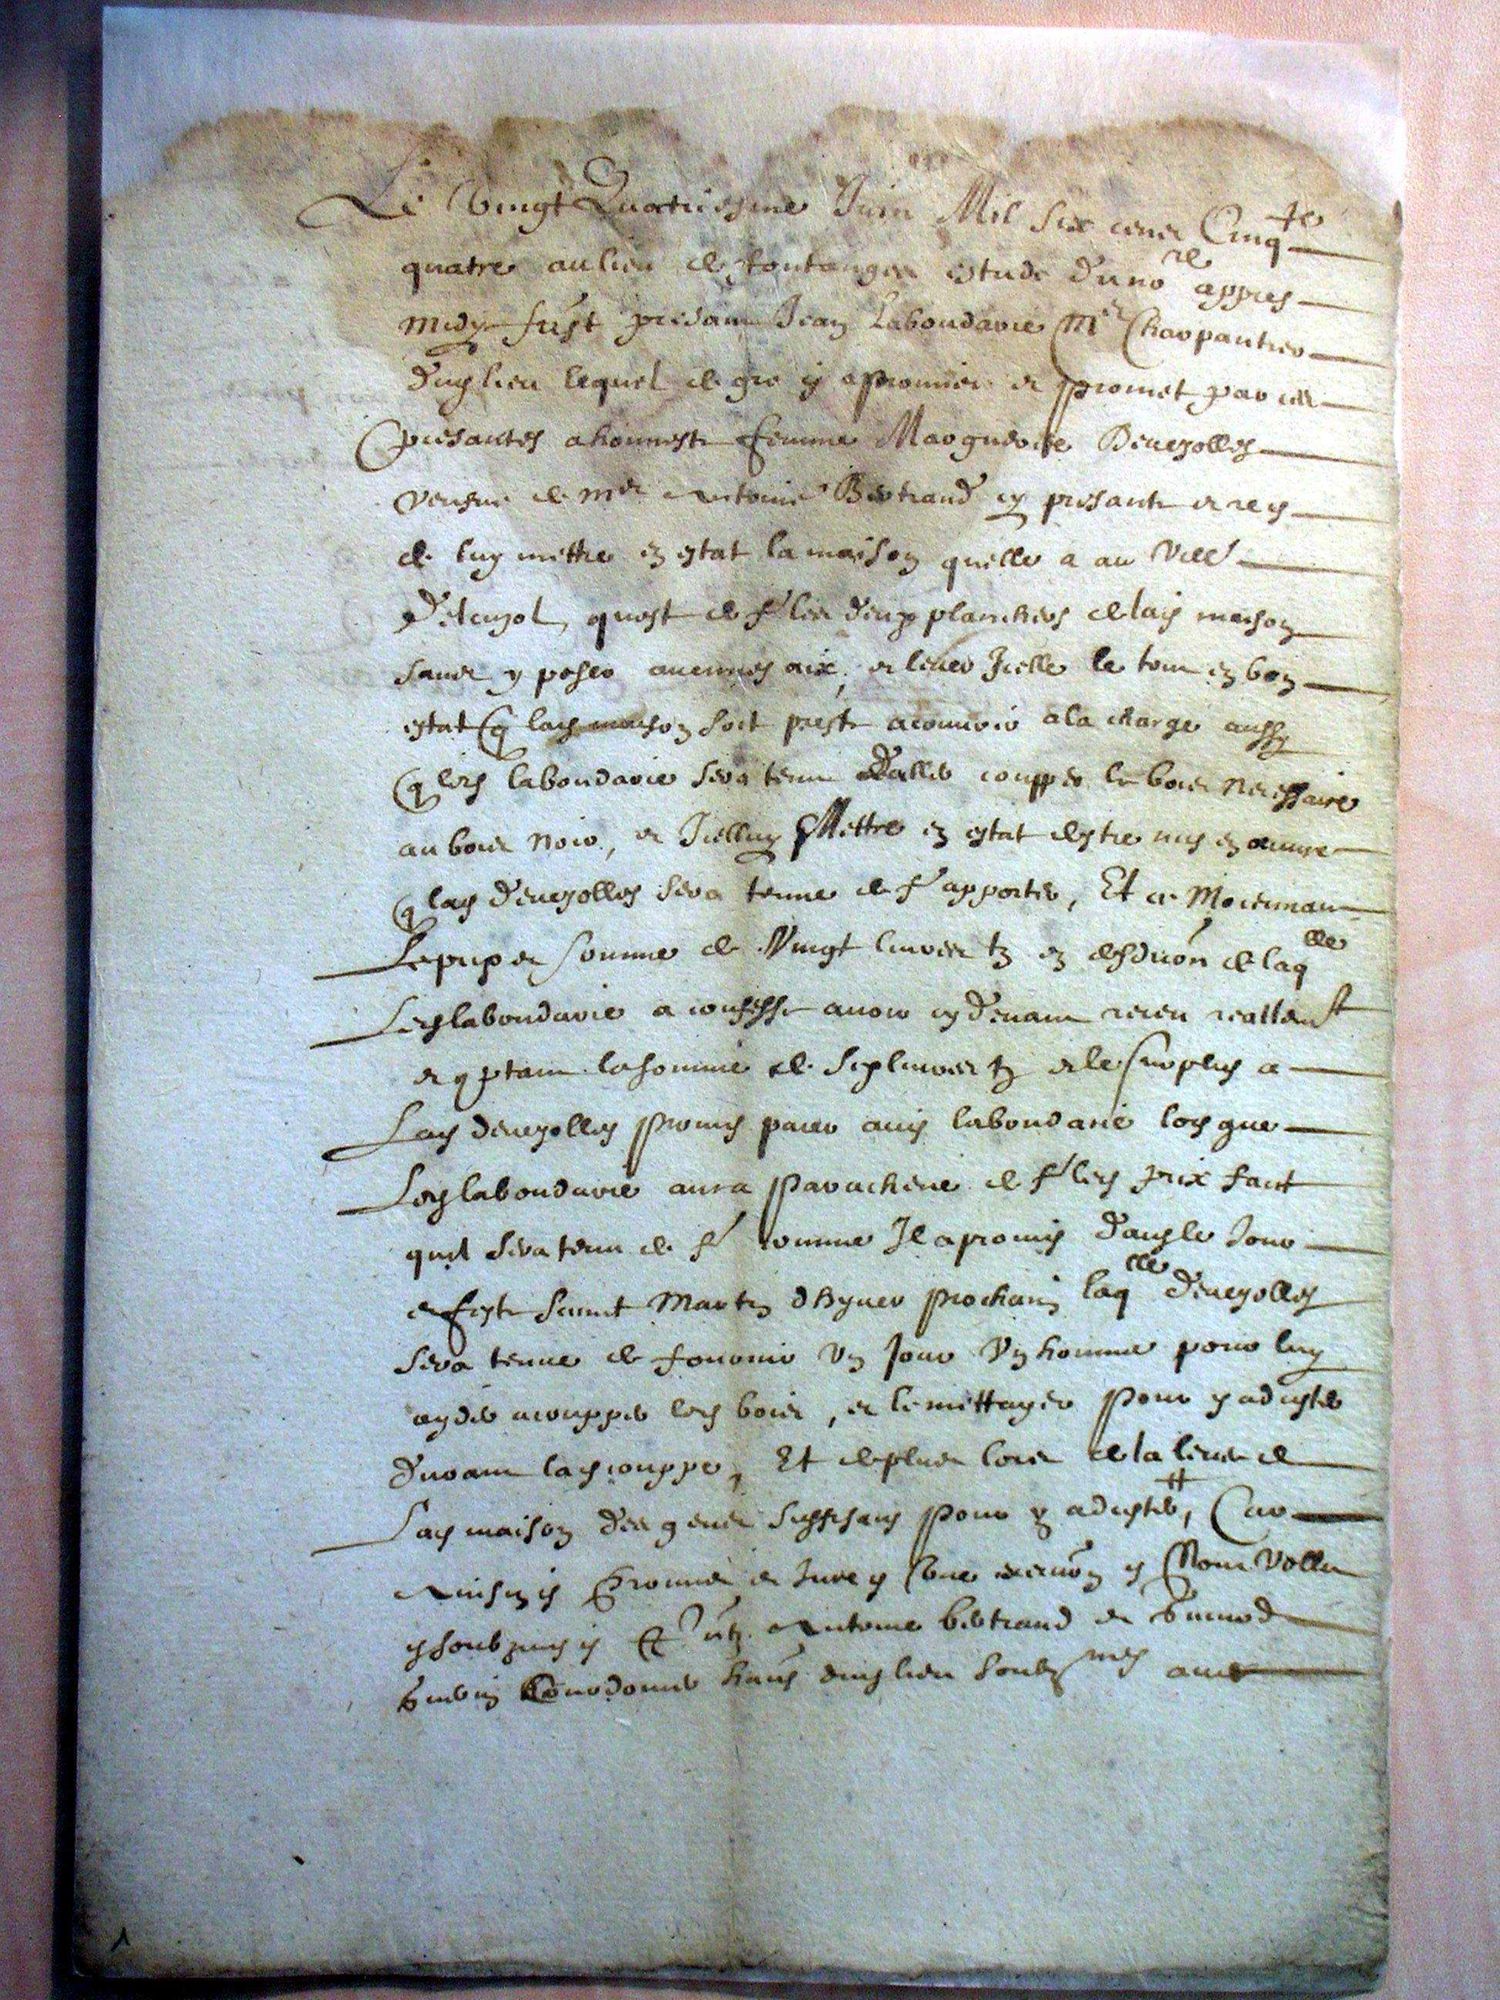 Le Vingt Quatriesme Juin Mil six cens Cinq.te
quatre au lieu de fontanges estude du no.re appres
midy fust presant Jean Labondarie M.e Charpantier
dud lieu lequel de gre a promis et promet par ces
presantes a honneste femme Marguerite Deuezolles
veufue de m.e Antoine Bertrand cy presante et
de luy mettre en estat la maison quelle a au vill.
quest de f.e les deux planchers de lad maison
sans y poser aucunes aix, et leuer Icelle le tout en bon
estat q lad maison soit preste a couurir a la charge aussy
q led labondarie sera tenu daller coupper le bois necessaire
au bois noir, et Icelluy Mettre en estat destre mis en œuure
q lad deuezolles sera tenue de f.e apporter, Et ce Moiennant
Le prix et somme de Vingt liures tz en desduon de laq.lle
Led labondarie a confesse auoir cy deuant receu reallemt
et cptant la somme de sept liures tz et le surplus a
Lad deuezolles promis paier aud labondarie lors que
Led labondarie aura paracheue de f.e led prix faict
quil sera tenu de f.e comme Il a promis dans le Jour
et feste sainct Martin dhyuer prochain laq.lle deuezolles
sera tenue de fournir un Jour un homme pour luy
ayder a coupper led bois, et le mettayer pour y adcister
durant lad couppe, Et de plus lors de la leuee de
Lad maison des gens suffisans pour y adcister, Car
Ainsin promis et Jure
Antoine bertrand et
habns dud lieu soubz.nes auec